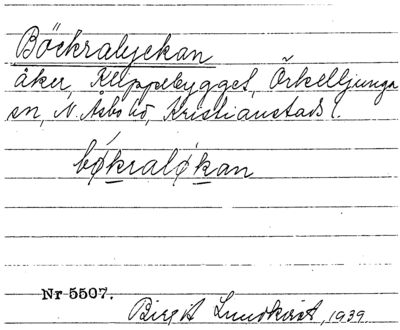 Böckralyckan
åker, Kleppebygget, Örkelljunga
sn, N. Åsbo hd, Kristianstads l.
bǿkralǿkan
Nr 5507.
Birgit Lundkvist, 1939.